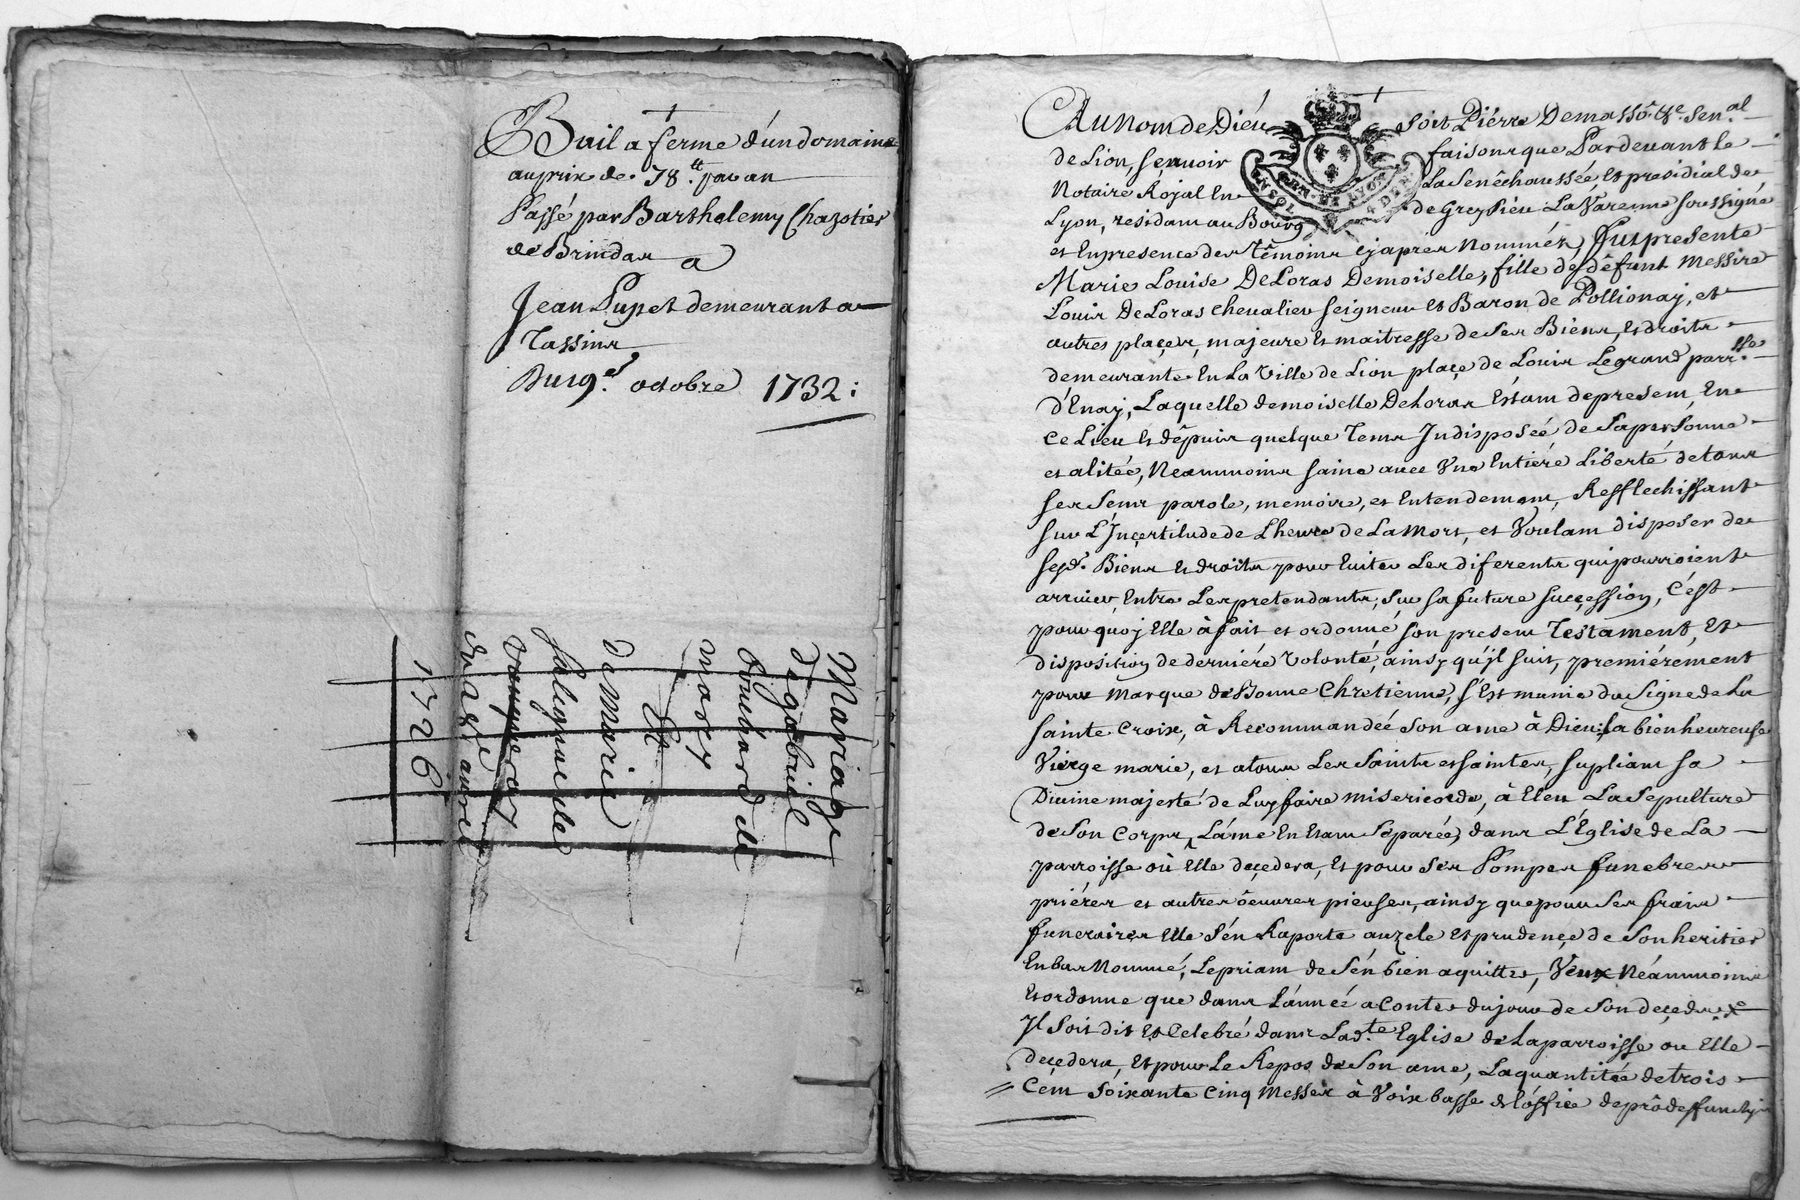 Bail a ferme d'un domaine
au prix de 78 tt par an
Passé par Barthelemy Chazotier
de Brindas a
Jean Pupet demeurant a
Tassins
Du 19.e octobre 1732 :
Mariage
de gabriel
Bouchard de
marcy
Et
de Marie
du avril
1726
Au nom de Diéu soit Piérre Demasso &c. Sen.al
de Lion, sçauoir faisons que Pardeuant le
Notaire Rojal En La Senêchaussée, et presidial de
Lyon, residant au Bourg de Grezieu La Varenne soussigné
et En presence des têmoins cj aprés Nommés, fut presente
Marie Louise De Loras Demoiselle, fille de dêfunt Messire
Louis De Loras cheualier seigneur et Baron de Pollionaj, et
autres plaçes, majeure et maitresse de ses Biens, et droits
demeurante En La Ville de Lion plaçe de Louis Legrand parr.sse
d'Enaj, Laquelle demoiselle De Loras Estant de present En
ce Lieu et dêpuis quelque Tems Indisposée de sa personne
et alitée, Neanmoins saine auec Vne Entiére Liberté de tous
ses sens parole, memoire, et Entendement, Reffléchissant
sur L'Inçertitude de L'heure de La Mort, et Voulant disposer de
sesd. Biens et droits pour Euiter Les diferents qui pourroient
arriuer Entre Les pretendants, sur sa future sucçession, C'est
pourquoj Elle à fait et ordonné son present Testament, Et
disposition de derniére Volonté, ainsy qu'jl suit, premiérement
pour Marque de Bonne Chretienne, s'Est munie du signe de La
sainte Croix, à Recommandée son ame à Dieu, la bienheureuse
Vierge marie, et a tous Les Saints et saintes, supliant sa
Diuine majesté de Luy faire Misericorde, à Eleu La Sepulture
de Son Corps, L'ame En Etant Separée, dans L'Eglise de La
parroisse où Elle deçedera, Et pour Ses Pompes funebres
priéres et autres oeuures pieuses, ainsy que pour Ses frais
funeraires Elle S'én Raporte au zele Et prudençe de Son heritier
En bas Nommé, Le priant de S'én bien aquitter, Veux Néanmoins
Et ordonne que dans L'année a Conter du jour de Son deçeds
Jl Soit dit Et Celebré dans Lad.te Eglise de La parroisse ou Elle
deçedera, Et pour Le Repos de Son ame, La quantitée de trois
Cent Soixante Cinq Messes à Voix basse